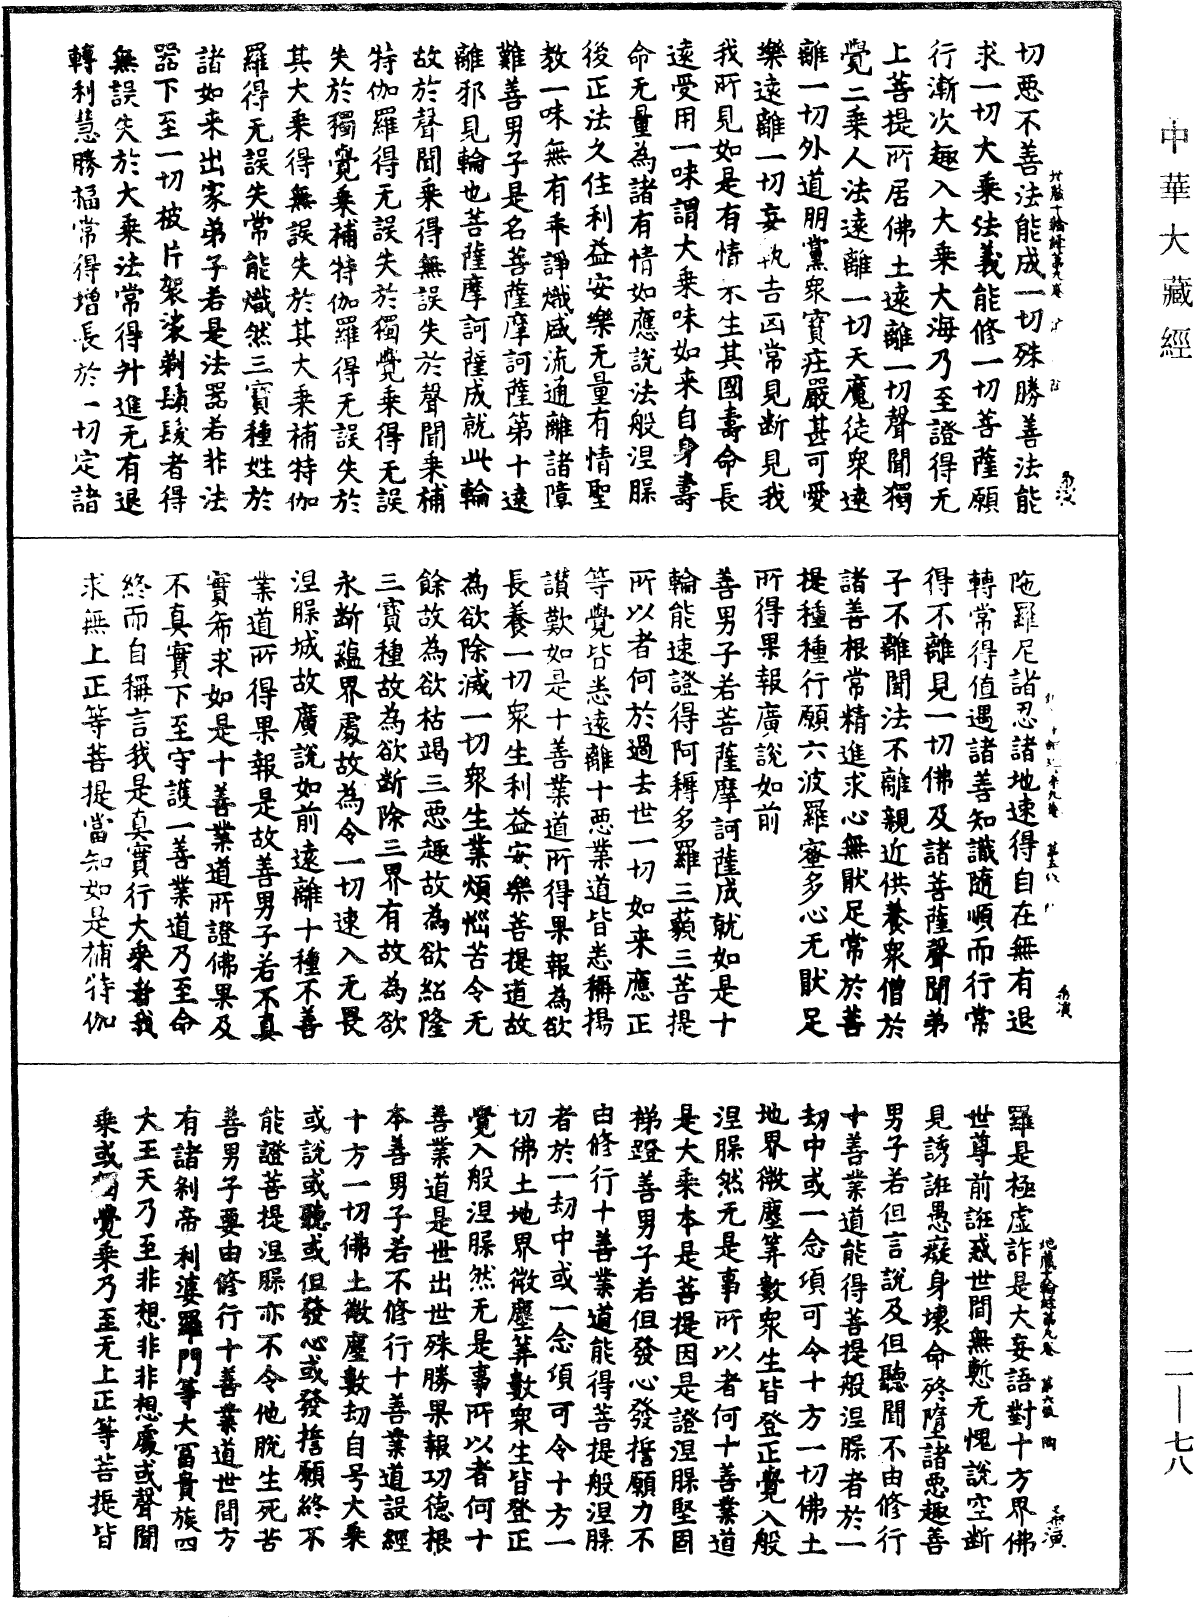 中華大藏經
切惡不善法能成一切殊勝善法能
求一切大乘法義能修一切菩薩願
行漸次趣入大乘大海乃至證得无
上菩提所居佛土遠離一切聲聞獨
覺二乘人法遠離一切天魔徒眾遠
離一切外道朋黨眾寶莊嚴甚可愛
樂遠離一切妄執吉凶常見斷見我
我所見如是有情不生其國壽命長
遠受用一味謂大乘味如来自身壽
命无量為諸有情如應說法般涅槃
後正法久住利益安樂无量有情聖
教一味無有乖諍熾盛流通離諸障
難善男子是名菩薩摩訶薩第十遠
離邪見輪也菩薩摩訶薩成就此輪
故於聲聞乘得無誤失於聲聞乘補
特伽羅得无誤失於獨覺乘得无誤
失於獨覺乘補特伽羅得无誤失於
其大乘得無誤失於其大乘補特伽
羅得无誤失常能熾然三寶種姓於
諸如来出家弟子若是法器若非法
器下至一切被片袈裟剃鬚髮者得
無誤失於大乘法常得升進无有退
轉利慧勝福常得增長於一切定諸
陁羅尼諸忍諸地速得自在無有退
轉常得值遇諸善知識隨順而行常
得不離見一切佛及諸菩薩聲聞弟
子不離聞法不離親近供養眾僧於
諸善根常精進求心無猒足常於菩
提種種行願六波羅蜜多心无猒足
所得果報廣說如前
善男子若菩薩摩訶薩成就如是十
輪能速證得阿耨多羅三藐三菩提
所以者何於過去世一切如来應正
等覺皆悉遠離十惡業道皆悉稱揚
讚歎如是十善業道所得果報為欲
長養一切眾生利益安樂菩提道故
為欲除滅一切眾生業煩惱苦令无
餘故為欲枯竭三惡趣故為欲紹隆
三寶種故為欲斷除三界有故為欲
永斷蘊界處故為令一切速入无畏
涅槃城故廣說如前遠離十種不善
業道所得果報是故善男子若不真
實希求如是十善業道所證佛果及
不真實下至守護一善業道乃至命
終而自稱言我是真實行大乘者我
求無上正等菩提當知如是補特伽
地藏十輪經第九卷 第六張 陶
羅是極虛詐是大妄語對十方界佛
世尊前誑惑世間無慙无愧說空斷
見誘誑愚癡身壞命終墮諸惡趣善
男子若但言說及但聽聞不由修行
十善業道能得菩提般涅槃者於一
劫中或一念頃可令十方一切佛土
地界微塵筭數眾生皆登正覺入般
涅槃然无是事所以者何十善業道
是大乘本是菩提因是證涅槃堅固
梯蹬善男子若但發心發誓願力不
由修行十善業道能得菩提般涅槃
者於一劫中或一念頃可令十方一
切佛土地界微塵筭數眾生皆登正
覺入般涅槃然无是事所以者何十
善業道是世出世殊勝果報功德根
本善男子若不修行十善業道設經
十方一切佛土微塵數劫自号大乘
或說或聽或但發心或發誓願終不
能證菩提涅槃亦不令他脫生死苦
善男子要由修行十善業道世間方
有諸剎帝利婆羅門等大冨貴族四
大王天乃至非想非非想處或聲聞
乘或獨覺乘乃至无上正等菩提皆
一一—七八